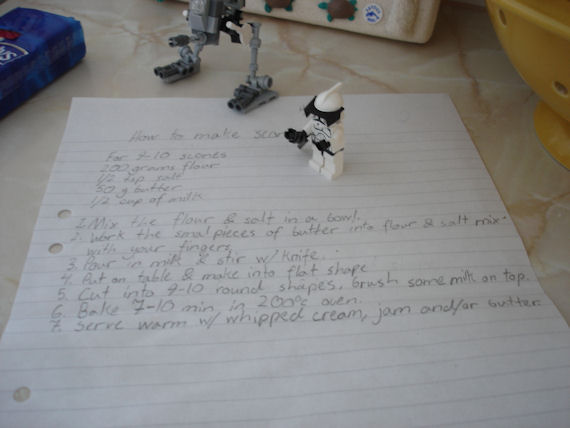 How to make
For 9-10 scones
200 grams flour
1/2 tsp salt
50 g butter
1/2 cup of milk
1. Mix the flour & salt in a bowl.
2. Work the small pieces of butter into flour & salt mix
with your fingers
3. Pour in milk & stir w/ knife.
4. Put on table & make into flat shape
5. Cut into 9-10 round shapes. brush some milk on top.
6. Bake 7-10 min in 200°c oven.
7. Serve warm w/ whipped cream, jam and/or butter.